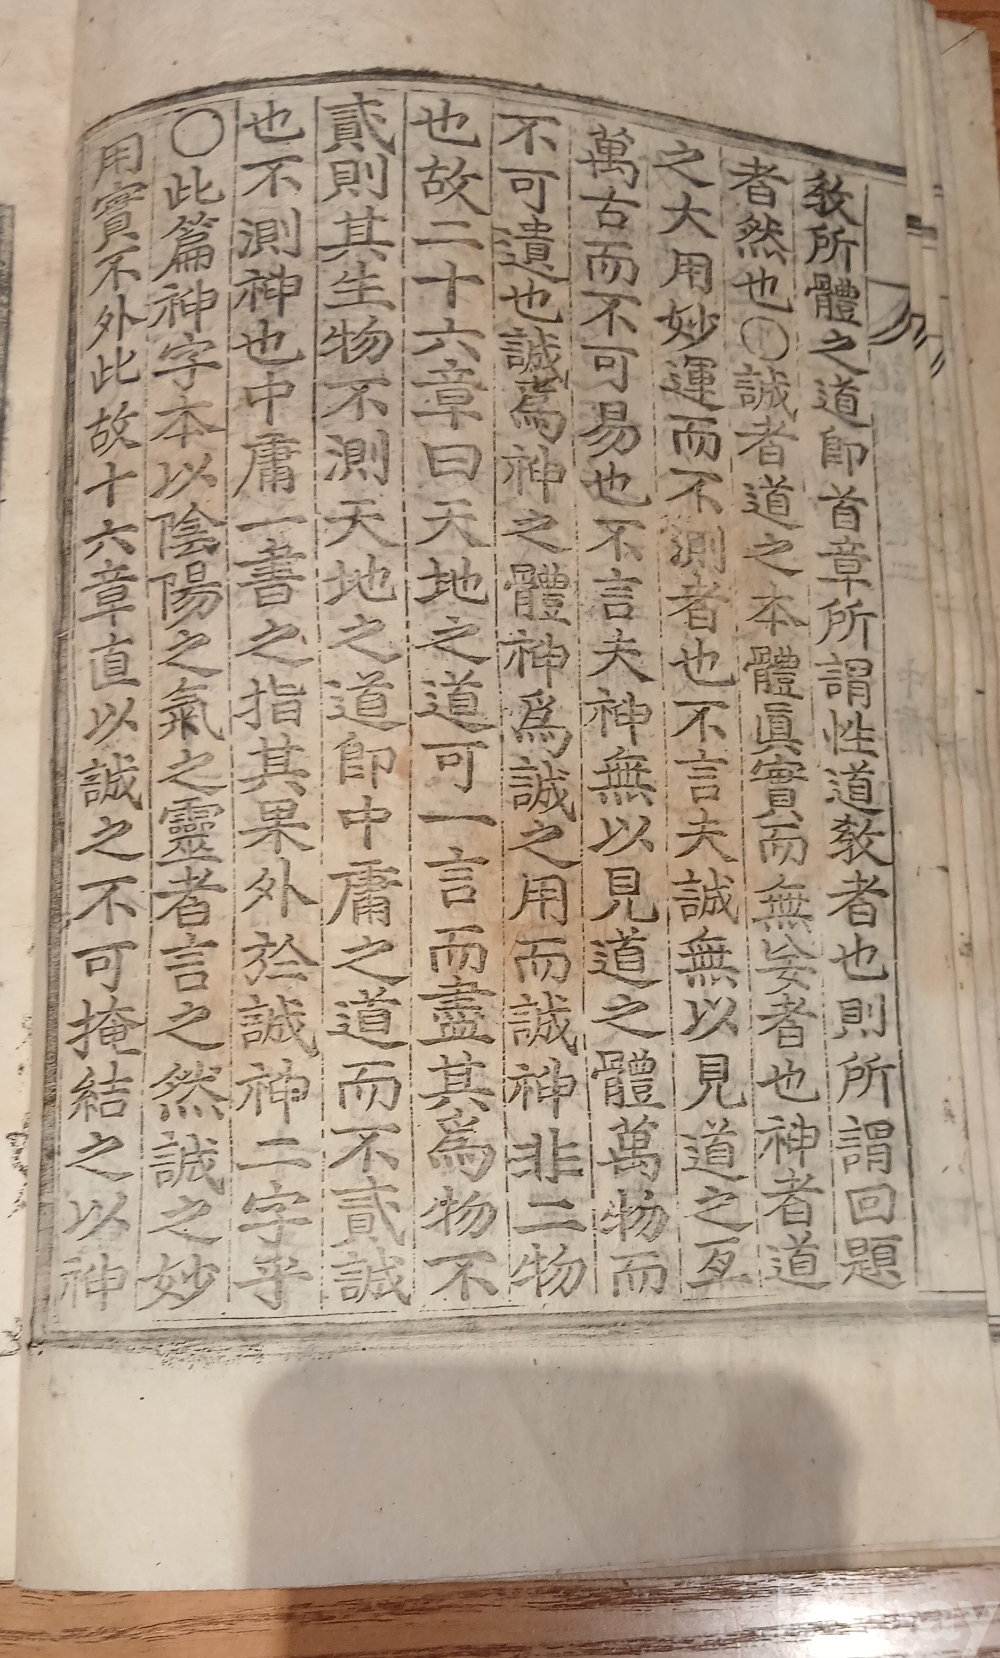 敎所體之道卽首章所謂性道敎者也則所謂回題
者然也○誠者道之本體眞實而無妄者也神者道
之大用妙運而不測者也不言夫誠無以見道之亙
萬古而不可易也不言夫神無以見道之體萬物而
不可遺也誠爲神之體神爲誠之用而誠神非二物
也故二十六章曰天地之道可一言而盡其爲物不
貳則其生物不測天地之道卽中庸之道而不貳誠
也不測神也中庸一書之指其果外於誠神二字乎
○此篇神字本以陰陽之氣之靈者言之然誠之妙
用實不外此故十六章直以誠之不可掩結之以神